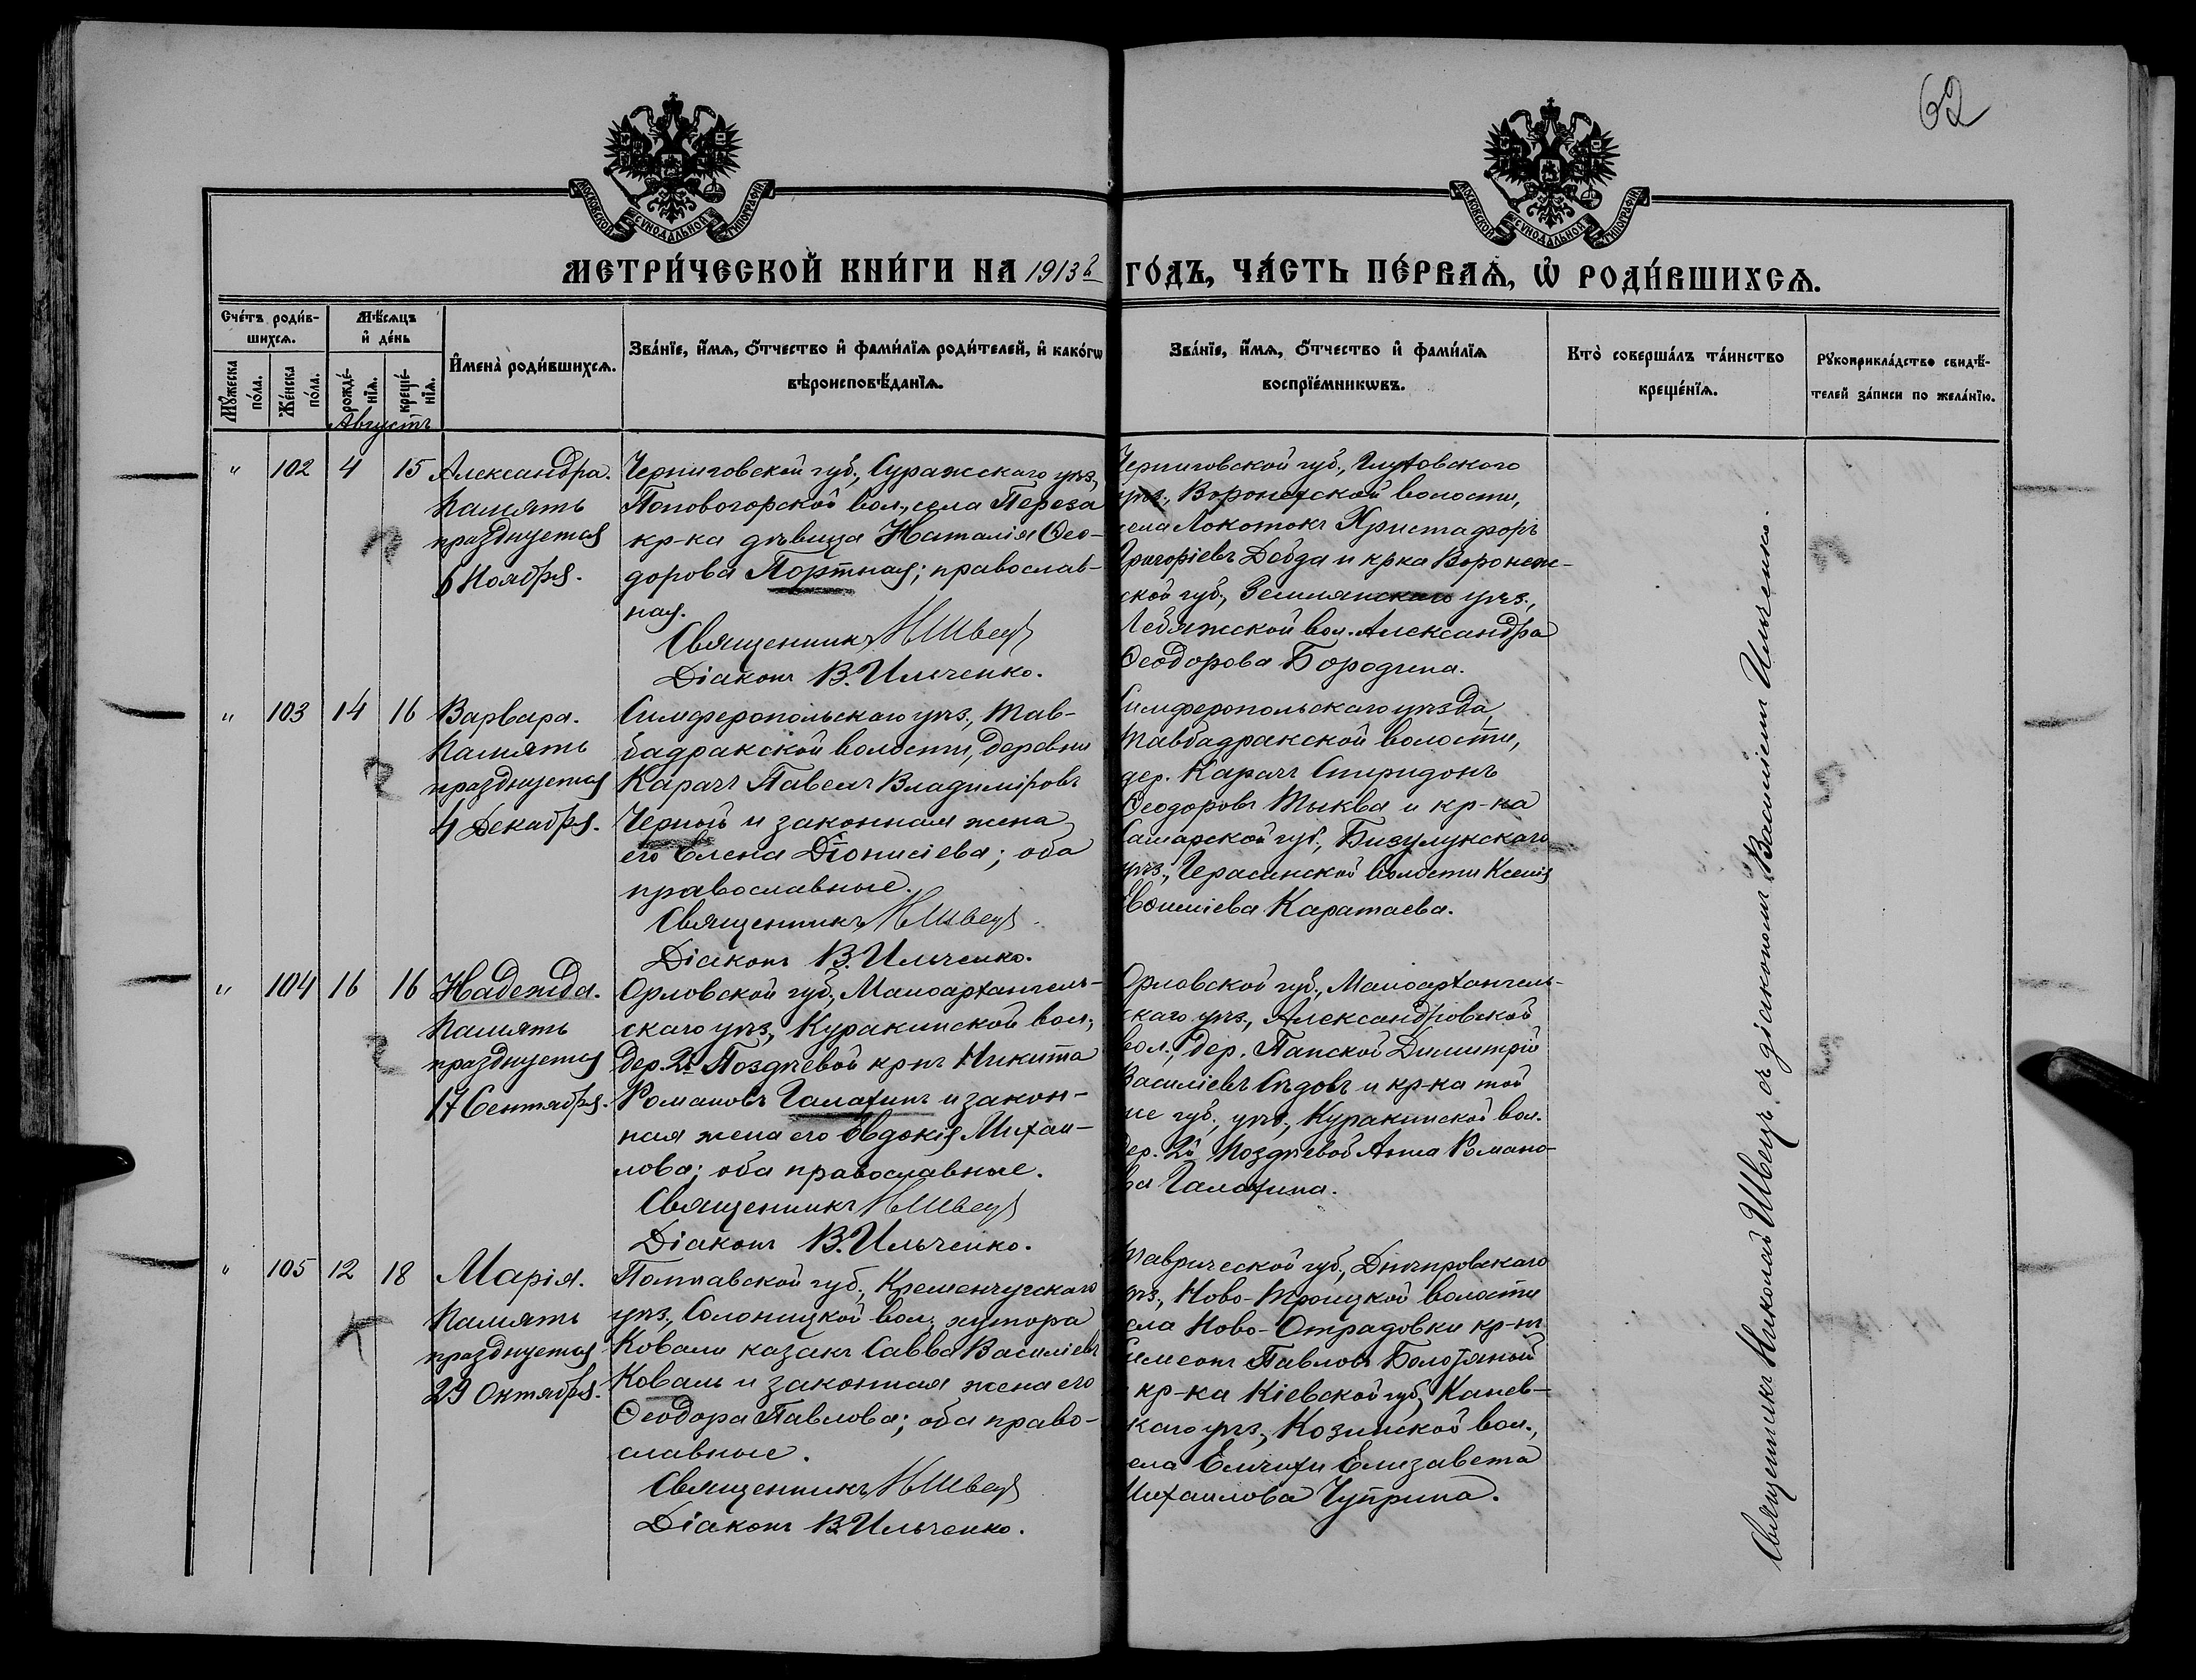 62
МОСКОВСКОЙ СѴНОДАЛЬНОЙ ТИПОГРАФІИ
МОСКОВСКОЙ СѴНОДАЛЬНОЙ ТИПОГРАФІИ
МЕТРИ́ЧЕСКОЙ КНИ́ГИ НА 1913й ГО́ДЪ, ЧА́СТЬ ПЕ́РВАѦ, Ѡ҆ РОДИ́ВШИХСѦ.
Сче́тъ роди́в-
шихсѧ.
Мꙋ́жеска по́ла.
Же́нска по́ла.
Мѣ́сѧцъ
и҆ де́нь
рожде́-
нїѧ.
креще́-
нїѧ.
И҆мена̀ роди́вшихсѧ.
Зва́нїе, и҆́мѧ, ѻ҆́тчество и҆ фами́лїѧ роди́телей, и҆ како́гѡ
вѣроисповѣ́данїѧ.
Зва́нїе, и҆́мѧ, ѻ҆́тчество и҆ фами́лїѧ
воспрїе́мникѡвъ.
Кто̀ соверша́лъ та́инство
креще́нїѧ.
Рꙋкоприкла́дство свидѣ́-
телей за́писи по жела́нїю.
Августъ
" 102 4 15 Александра.
Память
празднуется
6 Ноября.
Черниговской губ., Суражскаго уѣз.,
Поповогорской вол., села
кр-ка дѣвица Наталія Ѳео-
дорова Портная; православ-
ная.
Священникъ НШвецъ
Діаконъ В. Ильченко.
Черниговской губ., Глуховского
уѣз., Воронежской волости,
села Локотокъ Христафоръ
Григоріевъ и кр-ка Воронеж-
ской губ., Землянскаго уѣз.,
Лебяжской вол. Александра
Ѳеодорова Бородина.
" 103 14 16 Варвара.
Память
празднуется
4 Декабря.
Симферопольскаго уѣз., Тав-
бадракской волости, деревни
Карачъ Павелъ Владиміровъ
Черный и законная жена
его Елена Діонисіева; оба
православные.
Священникъ НШвецъ
Діаконъ В. Ильченко.
Симферопольскаго уѣзда,
Тавбадракской волости,
дер. Карачъ Спиридонъ
Ѳеодоровъ Тыква и кр-ка
Самарской губ., Бузулукскаго
уѣз., Герасимской волости Ксенія
Евѳиміева Каратаева.
" 104 16 16 Надежда.
Память
празднуется
17 Сентября.
Орловской губ., Малоархангель-
скаго уѣз., Куракинской вол.,
дер. 2й Позднѣевой кр-нъ Никита
Романовъ Галахинъ и закон-
ная жена его Евдокія Михаи-
лова; оба православные.
Священникъ НШвецъ
Діаконъ В. Ильченко.
Орловской губ., Малоархангель-
скаго уѣз., Александровской
вол., дер. Панской Димитрій
Василіевъ Сѣдовъ и кр-ка той
же губ., уѣз., Куракинской вол.
дер. 2й Позднѣевой Анна Романо-
ва Галахина.
" 105 12 18 Марія.
Память
празднуется
29 Октября.
Полтавской губ., Кременчугскаго
уѣз., Солоницкой вол., хутора
Ковали казакъ Савва Василіевъ
Коваль и законная жена его
Ѳеодора Павлова; оба право-
славные.
Священникъ НШвецъ
Діаконъ В. Ильченко.
Таврической губ., Днѣпровскаго
уѣз., Ново-Троицкой волости
села Ново-Отрадовки кр-нъ
Симеонъ Павловъ
и кр-ка Кіевской губ., Канев-
скаго уѣз., Козинской вол.,
села Емчихи Елизавета
Михаилова Чуприна.
Священникъ Николай Швецъ съ діакономъ Василіемъ Ильченко.